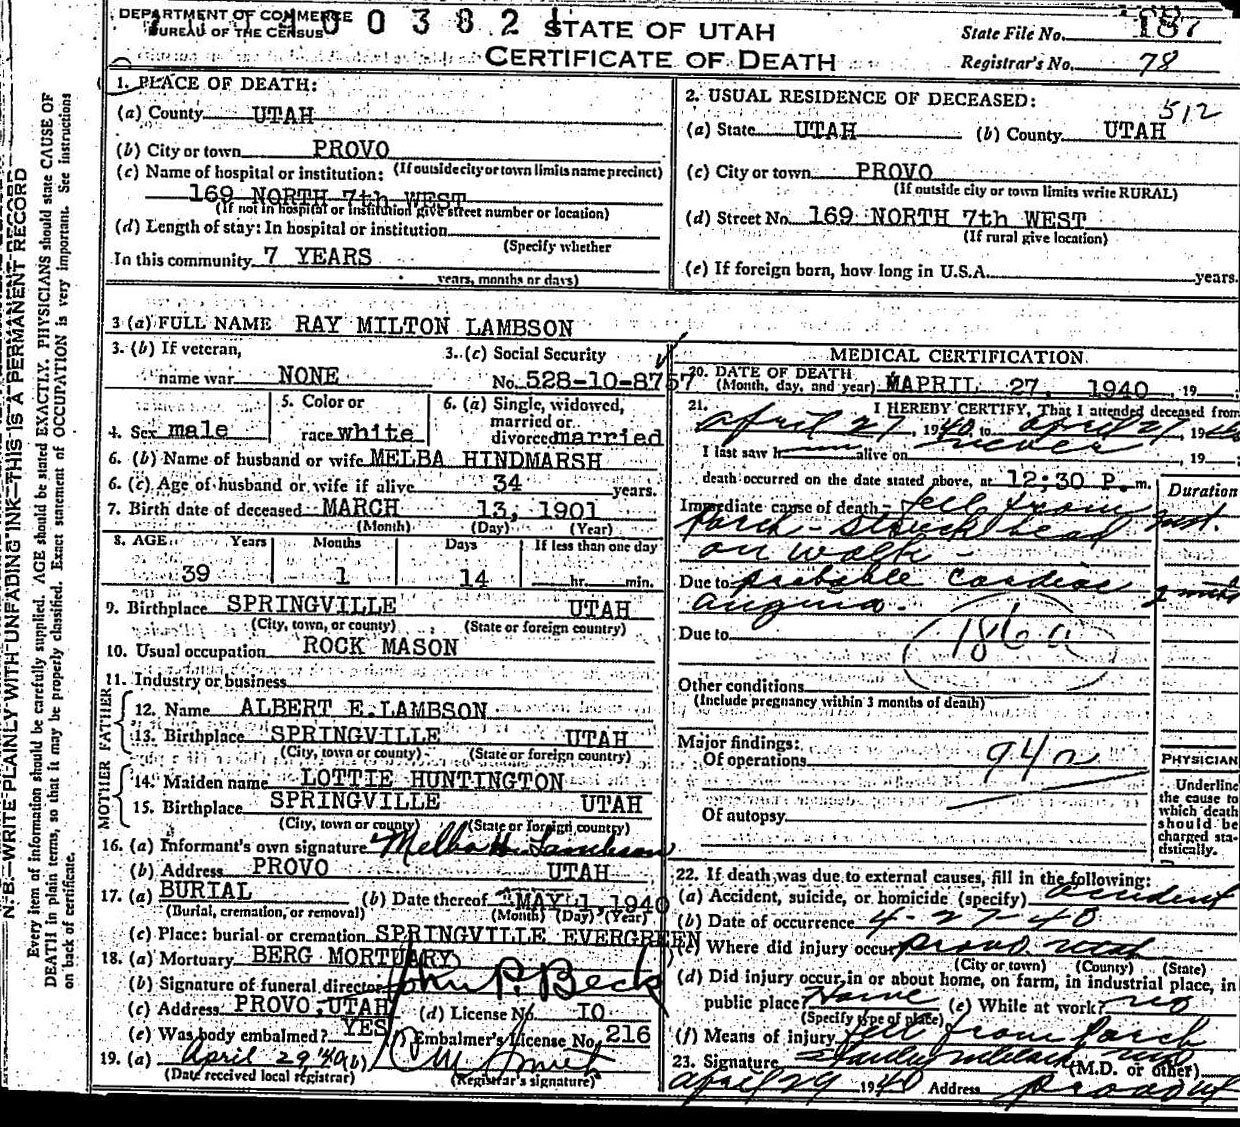 DEPARTMENT OF COMMERCE
BUREAU OF THE CENSUS
0 0 3 8 2 1
STATE OF UTAH
CERTIFICATE OF DEATH
State File No. 187
Registrar's No. 78
1. PLACE OF DEATH:
(a) County UTAH
(b) City or town PROVO
(If outside city or town limits name precinct)
(c) Name of hospital or institution:
169 NORTH 7th WEST
(If not in hospital or institution give street number or location)
(d) Length of stay: In hospital or institution
(Specify whether
In this community 7 YEARS
years, months or days)
2. USUAL RESIDENCE OF DECEASED:
512
(a) State UTAH (b) County UTAH
(c) City or town PROVO
(If outside city or town limits write RURAL)
(d) Street No. 169 NORTH 7th WEST
(If rural give location)
(e) If foreign born, how long in U.S.A. years.
3 (a) FULL NAME RAY MILTON LAMBSON
3. (b) If veteran,
name war NONE
3. (c) Social Security
No. 528-10-8757
4. Sex male
5. Color or
race white
6. (a) Single, widowed,
married or
divorced married
6. (b) Name of husband or wife MELBA HINDMARSH
6. (c) Age of husband or wife if alive 34 years.
7. Birth date of deceased MARCH 13, 1901
(Month) (Day) (Year)
8. AGE: Years Months Days If less than one day
39 1 14 hr. min.
9. Birthplace SPRINGVILLE UTAH
(City, town, or county) (State or foreign country)
10. Usual occupation ROCK MASON
11. Industry or business
FATHER
12. Name ALBERT E. LAMBSON
13. Birthplace SPRINGVILLE UTAH
(City, town or county) (State or foreign country)
MOTHER
14. Maiden name LOTTIE HUNTINGTON
15. Birthplace SPRINGVILLE UTAH
(City, town or county) (State or foreign country)
16. (a) Informant's own signature Melba H. Lambson
(b) Address PROVO UTAH
17. (a) BURIAL (b) Date thereof MAY 1, 1940
(Burial, cremation, or removal) (Month) (Day) (Year)
(c) Place: burial or cremation SPRINGVILLE EVERGREEN
18. (a) Mortuary BERG MORTUARY
(b) Signature of funeral director John P. Beck
(c) Address PROVO, UTAH (d) License No. 10
(e) Was body embalmed? YES Embalmer's License No. 216
19. (a) April 29 '40 (b)
(Date received local registrar) (Registrar's signature)
MEDICAL CERTIFICATION
20. DATE OF DEATH
(Month, day, and year) APRIL 27, 1940 , 19
21. I HEREBY CERTIFY, That I attended deceased from
April 27, 1940, to April 27, 1940
I last saw h alive on never , 19
death occurred on the date stated above, at 12:30 P. m.
Duration
Immediate cause of death fell from inst.
Porch - struck head
on walk -
Due to probable Cardiac
angina.
Due to
186 a
Other conditions
(Include pregnancy within 3 months of death)
Major findings:
Of operations
94a
Of autopsy
PHYSICIAN
Underline
the cause to
which death
should be
charged sta-
tistically.
22. If death was due to external causes, fill in the following:
(a) Accident, suicide, or homicide (specify) accident
(b) Date of occurrence 4-27-40
(c) Where did injury occur Provo. Utah
(City or town) (County) (State)
(d) Did injury occur in or about home, on farm, in industrial place, in
public place? Home (e) While at work? no
(Specify type of place)
(f) Means of injury fell from Porch
23. Signature
(M.D. or other)
April 29 1940 Address Provo Ut
N. B.—WRITE PLAINLY WITH UNFADING INK—THIS IS A PERMANENT RECORD
Every item of information should be carefully supplied. AGE should be stated EXACTLY. PHYSICIANS should state CAUSE OF
DEATH in plain terms, so that it may be properly classified. Exact statement of OCCUPATION is very important. See instructions
on back of certificate.